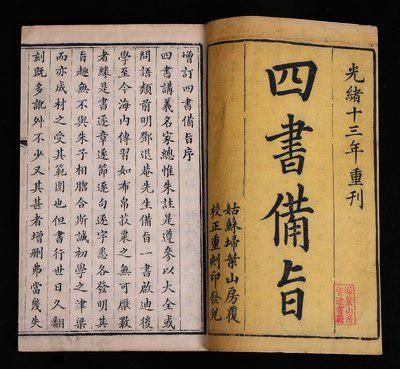 光緒十三年重刊
四書備旨
姑蘇埽葉山房覆
校正重刻印發兌
增訂四書備旨序
四書講義名家總惟朱註是遵參以大全或
問語類前明鄧退菴先生備旨一書啟迪後
學至今海內傳習如布帛菽粟之無可厭斁
者緣是書逐章逐節逐句逐字悉各發明其
旨趣無不與朱子相脗合斯誠初學之津梁
而亦成材之受其範圍也但書行世日久翻
刻既多訛舛不少又其甚者增刪弗當幾失